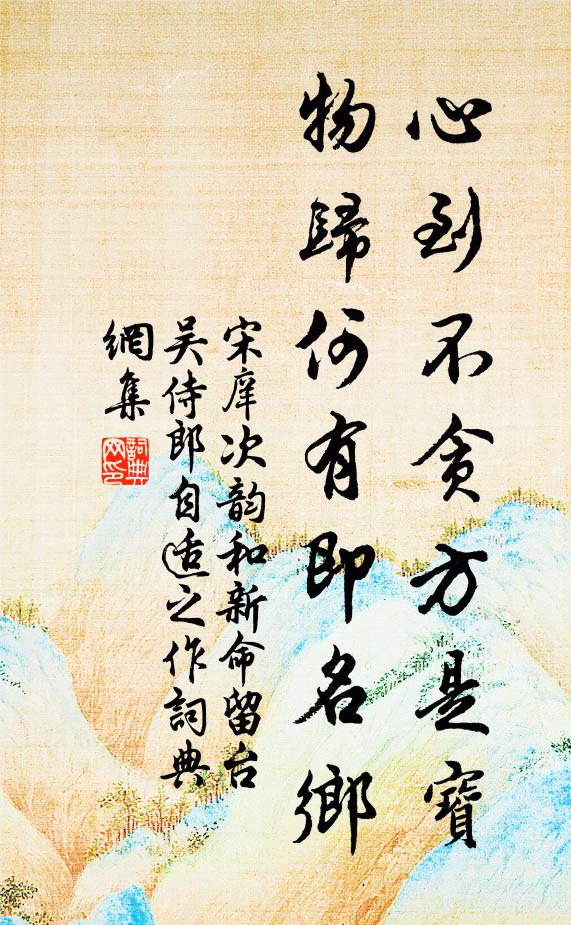 心到不貪方是寶
物歸何有即名鄉
宋庠次韵和新命留台
吴侍郎自适之作詞典
網集
詞典
网印